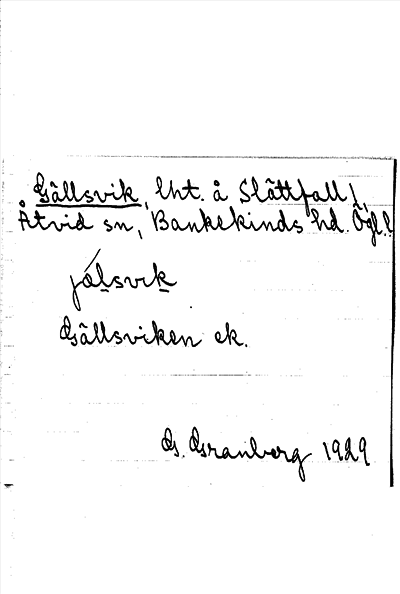 Gällsvik, lht. å Slättfall,
Åtvid sn, Bankekinds hd. Ögl.
jälsvik
Gällsviken ek.
G. Granberg 1929